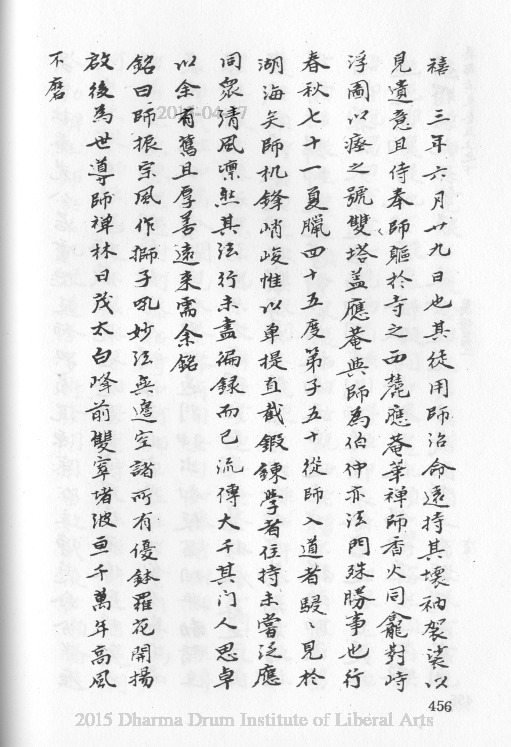 禧三年六月廿九日也其徒用師治命遠持其壞衲袈裟以
見遺竟且侍奉師軀於寺之西麓應菴華禪師香火同龕對峙
浮圖以瘞之號雙塔盖應菴與師為伯仲亦法門殊勝事也行
春秋七十一夏臘四十五度弟子五十從師入道者駸、見於
湖海矣師机鋒峭峻惟以单提直截鍛鍊學者住持未嘗泛應
同衆清風凛然其法行未盡徧録而已流傳大千其门人思卓
以余有舊且厚善遠来需余銘
銘曰師振宗風作獅子吼妙法無邊空諸所有優鉢羅花開揚
啟後為世導師禅林日茂太白峰前雙窣堵波亘千萬年高風
不磨
2015-04-17
456
2015 Dharma Drum Institute of Liberal Arts